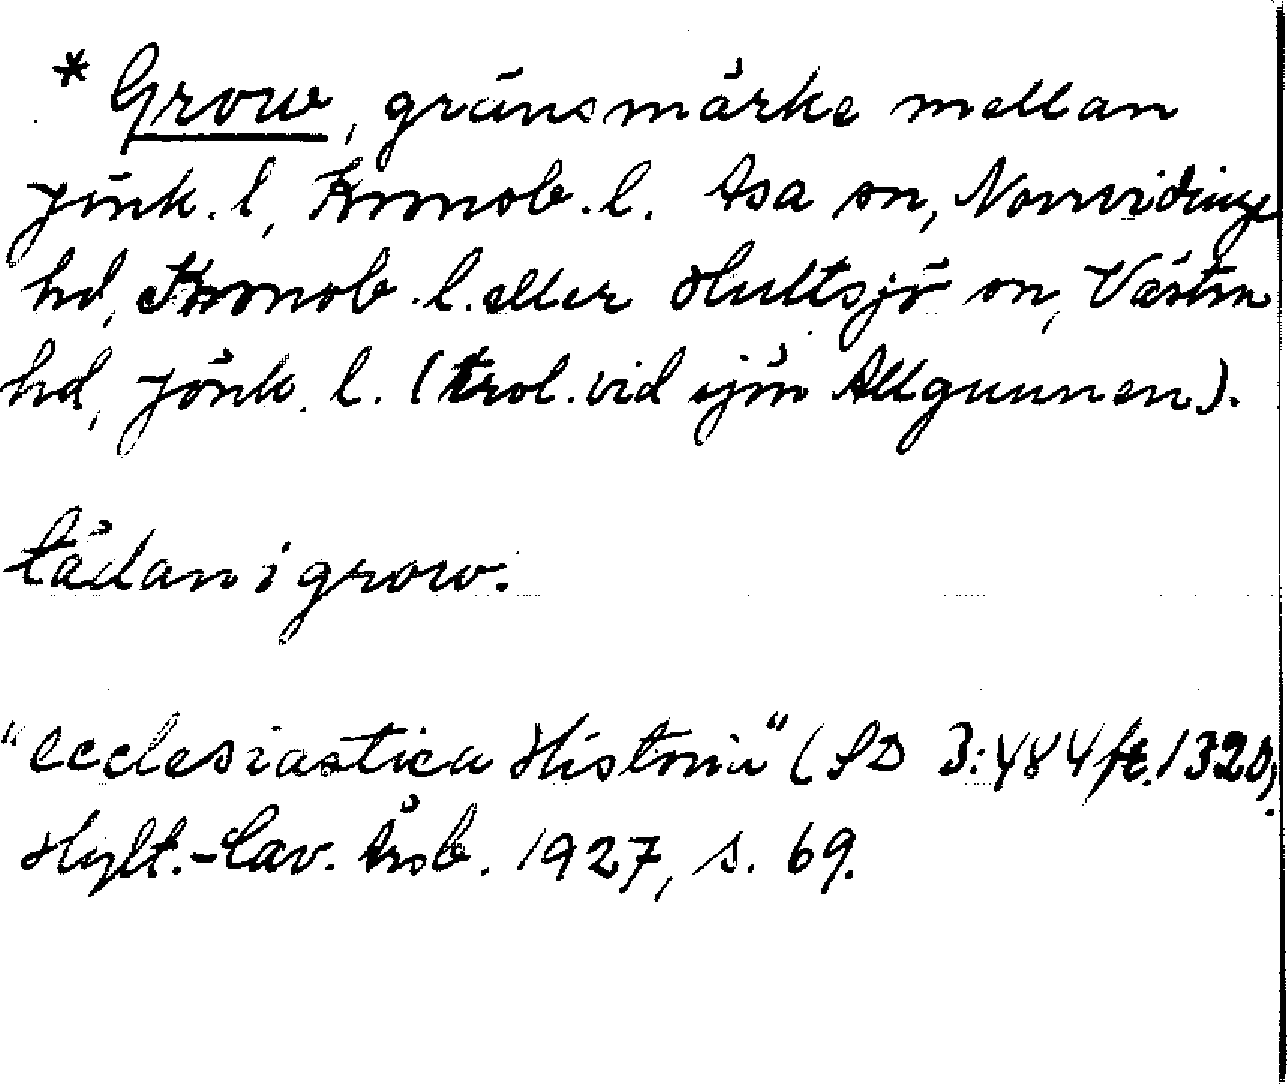 * Grow, gränsmärke mellan
Jönk. l, Kronob. l. Asa sn, Norrvidinge
hd, Kronob. l. eller Hultsjö sn, Västra
hd, Jönk. l. (trol. vid sjön Allgunnen).
tädan i grow.
"Ecclesiastica Historia" (SD 3:484 ft. 1320).
Hylt.-Cav. Årsb. 1927, s. 69.